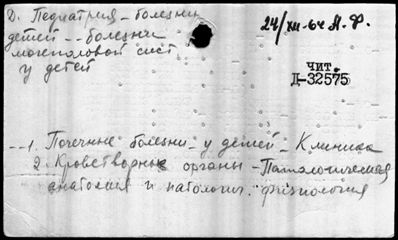 Д. Педиатрия - болезни
детей -- болезни
мочеполовой сист.
у детей
24/XII-64 А. Ф.
чит.
Д-32575
-- 1. Почечные болезни - у детей - Клиника
2. Кроветворные органы - Патологическая
анатомия и патология. физиология